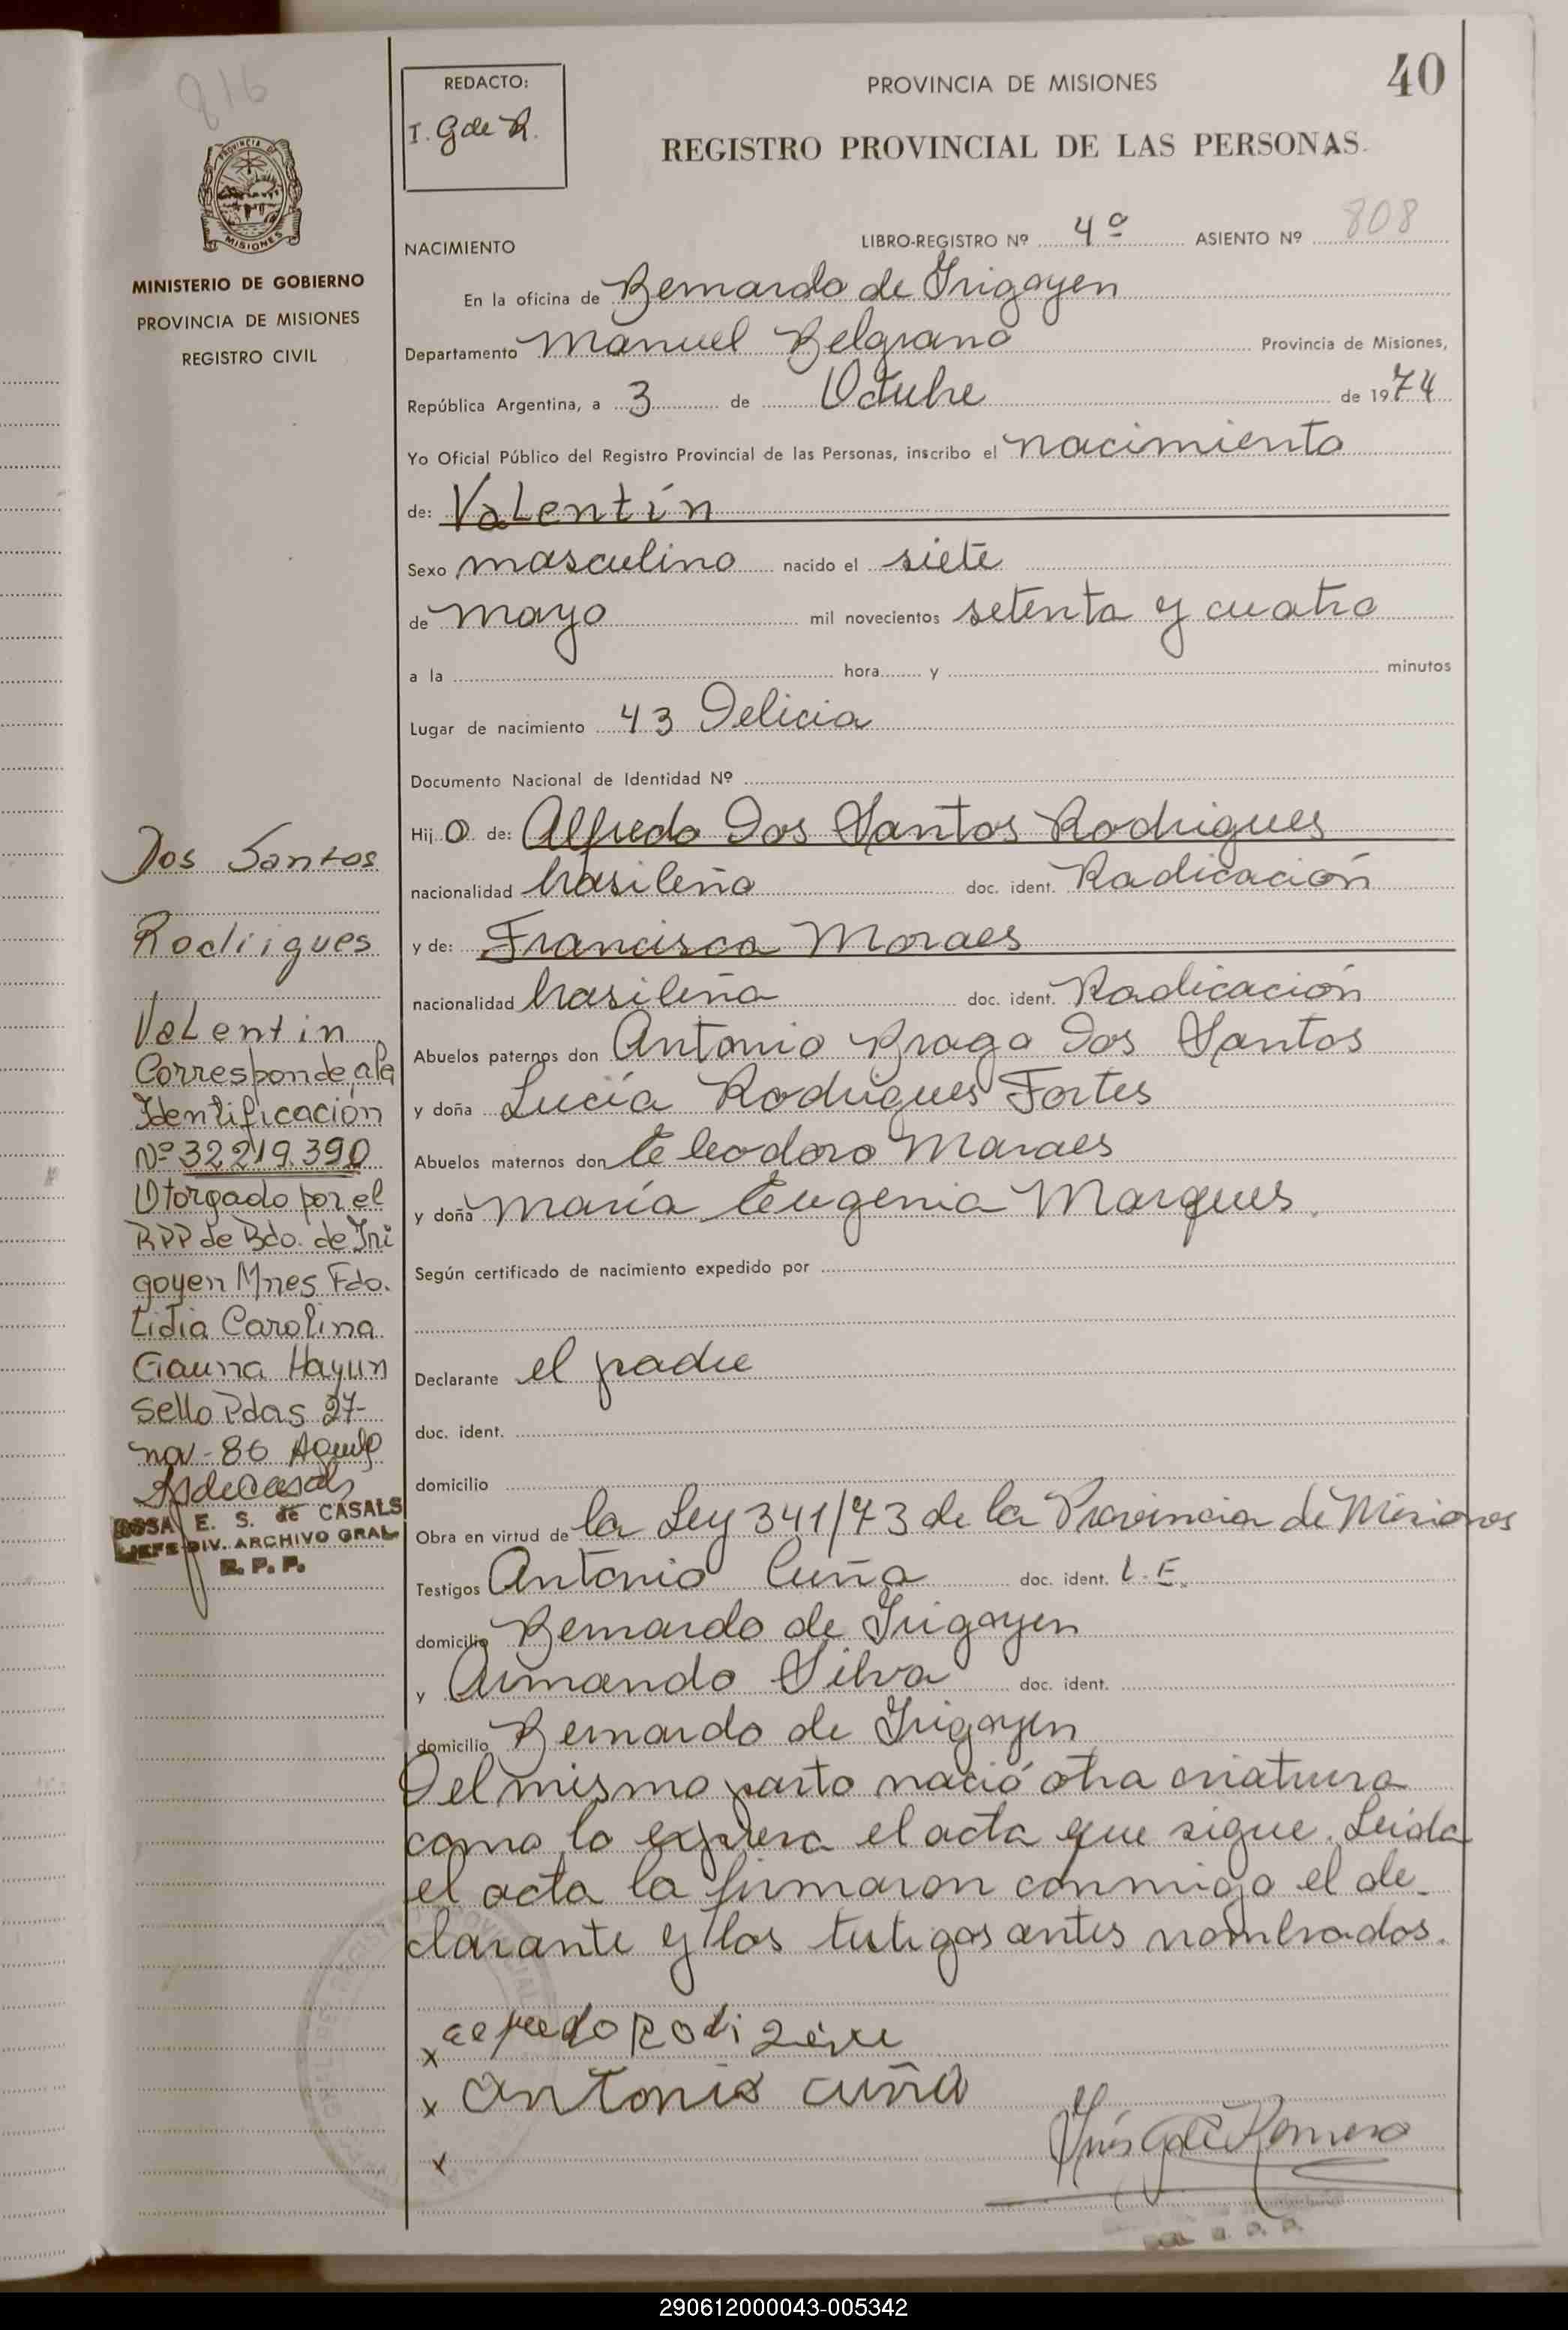 816
PROVINCIA DE
MISIONES
MINISTERIO DE GOBIERNO
PROVINCIA DE MISIONES
REGISTRO CIVIL
Dos Santos
Rodrigues
VaLentin
Corresponde a la
Identificación
Nº 32219.390
Otorgado por el
RPP de Bdo. de Iri
goyen Mnes Fdo.
Lidia Carolina
Gauna Hayun
Sello Pdas 27-
nov-86
ROSA E. S. de CASALS
JEFE DIV. ARCHIVO GRAL
R. P. P.
REDACTO:
I. G de R.
PROVINCIA DE MISIONES
40
REGISTRO PROVINCIAL DE LAS PERSONAS
NACIMIENTO LIBRO-REGISTRO Nº 4º ASIENTO Nº 808
En la oficina de Bernardo de Irigoyen
Departamento Manuel Belgrano Provincia de Misiones,
República Argentina, a 3 de Octubre de 1974
Yo Oficial Público del Registro Provincial de las Personas, inscribo el nacimiento
de: VaLentín
Sexo masculino nacido el siete
de mayo mil novecientos setenta y cuatro
a la hora y minutos
Lugar de nacimiento 43 Delicia
Documento Nacional de Identidad Nº
Hijo de: Alfredo Dos Santos Rodrigues
nacionalidad brasileña doc. ident. Radicación
y de: Francisca Moraes
nacionalidad brasileña doc. ident. Radicación
Abuelos paternos don Antonio Braga Dos Santos
y doña Lucía Rodrigues Fortes
Abuelos maternos don Eleodoro Moraes
y doña María Eugenia Marques.
Según certificado de nacimiento expedido por
Declarante el padre
doc. ident.
domicilio
Obra en virtud de la Ley 341/73 de la Provincia de Misiones
Testigos Antonio Cuña doc. ident. L.E.
domicilio Bernardo de Irigoyen
y Armando Silva doc. ident.
domicilio Bernardo de Irigoyen
Del mismo parto nació otra criatura
como lo expresa el acta que sigue. Leida
el acta la firmaron conmigo el de-
clarante y los testigos antes nombrados.
x
x Antonio cuña
x
Inés G de Romero
290612000043-005342